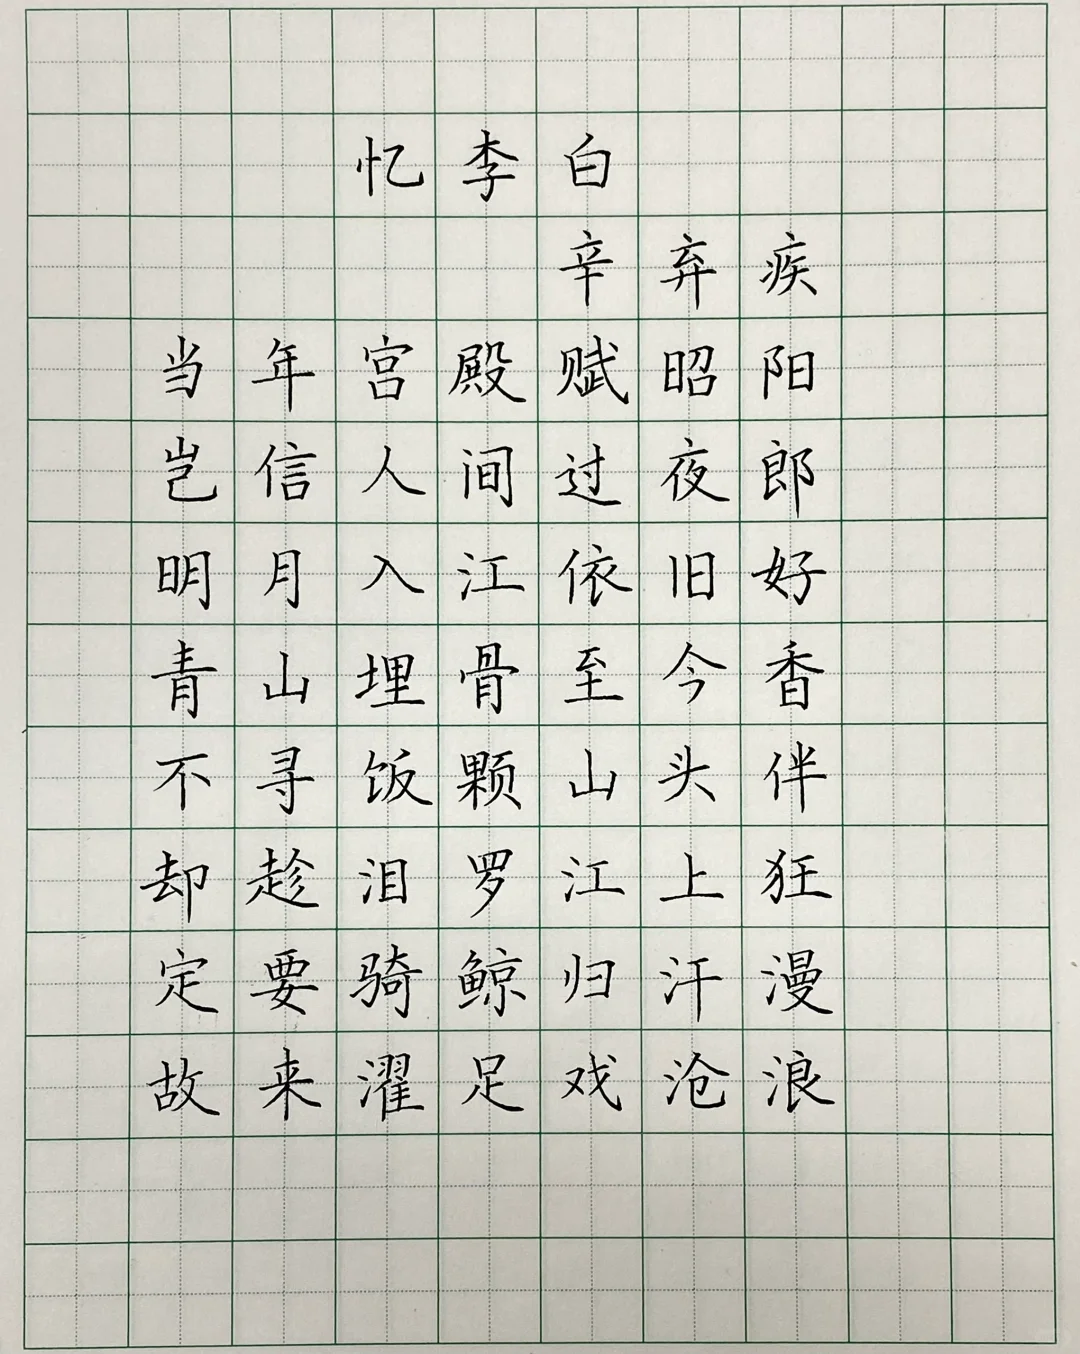 忆李白
辛弃疾
当年宫殿赋昭阳
岂信人间过夜郎
明月入江依旧好
青山埋骨至今香
不寻饭颗山头伴
却趁汨罗江上狂
定要骑鲸归汗漫
故来濯足戏沧浪